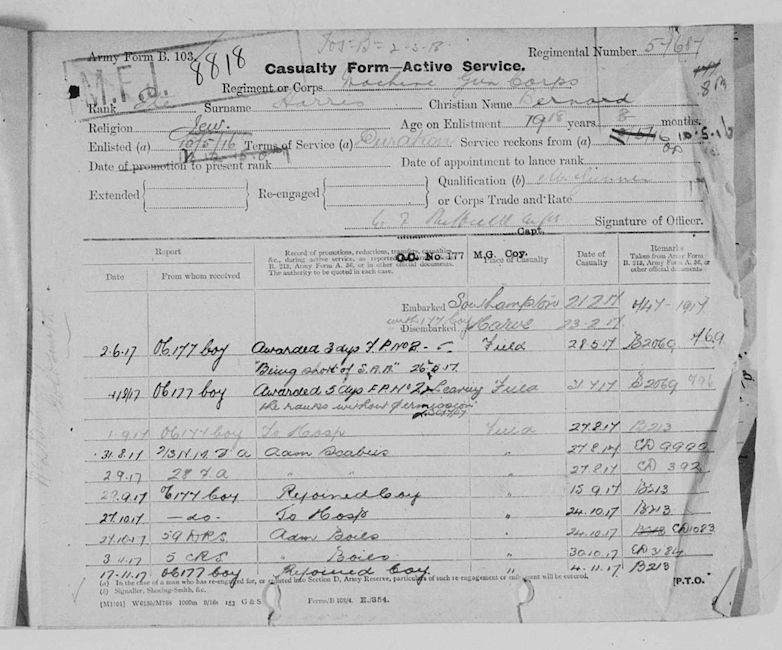 Tos "B" 2-3-18
Army Form B. 103.
8818
M.F.J.
Regimental Number 57687
Casualty Form—Active Service.
Regiment or Corps Machine Gun Corps
Rank Pte Surname Harris Christian Name Bernard
Religion Jew. Age on Enlistment 19 18 years 8 months.
Enlisted (a) 10/5/16 Terms of Service (a) Duration Service reckons from (a) 10.5.16
Date of promotion to present rank Date of appointment to lance rank
Extended Re-engaged Qualification (b)
or Corps Trade and Rate
Signature of Officer.
Capt.
O.C. No. 177 M.G. Coy.
Report
Date From whom received
Record of promotions, reductions, transfers, casualties, &c., during active service, as reported on Army Form B. 213, Army Form A. 36, or in other official documents. The authority to be quoted in each case.
Place of Casualty
Date of Casualty
Remarks
Taken from Army Form B. 213, Army Form A. 36, or other official documents
Embarked Southampton 21 2 17 1/47-1917
with 177 Coy
Disembarked Havre 23-2-17
2.6.17 OC 177 Coy Awarded 3 dys F.P. No 2 - Field 28 5 17 B2069 469
"Being short of S.A.A" 26.5.17.
4/8/17 OC 177 Coy Awarded 5 dys F.P. No 2 Leaving Field 31 7 17 B2069 496
the ranks without permission"
1-9-17 OC 177 Coy To Hosp Field 27.8.17 B213
31.8.17 2/3 F A Adm Scabies " 27.8.17 CD 9992
2.9.17 28 F.A " " " 27.8.17 CD 392
22.9.17 OC 177 Coy Rejoined Coy " 15 9.17 B213
27.10.17 —do— To Hosp " 24.10.17 B213
27.10.17 59 DRS Adm Boils " 24.10.17 B213 CD 1083
3 11.17 5 CRS " Boils " 30.10.17 CD 3184
17-11.17 OC 177 Coy Rejoined Coy " 4.11.17 B213
(a) In the case of a man who has re-engaged for, or enlisted into Section D, Army Reserve, particulars of such re-engagement or enlistment will be entered.
(b) Signaller, Shoeing-Smith, &c.
[P.T.O.
G & S Forms/B 103/4. E./354.